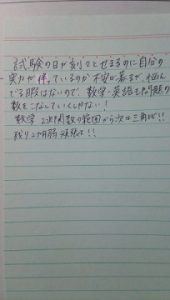 試験の日が刻々とせまるのに自分の
実力が伴っているのか不安が募ます。悩ん
でる暇はないので、数学・英語もやり
数をこなしていくしかない!
数学 2次関数の範囲から次は三角比!!
残り2か月弱 頑張る!!